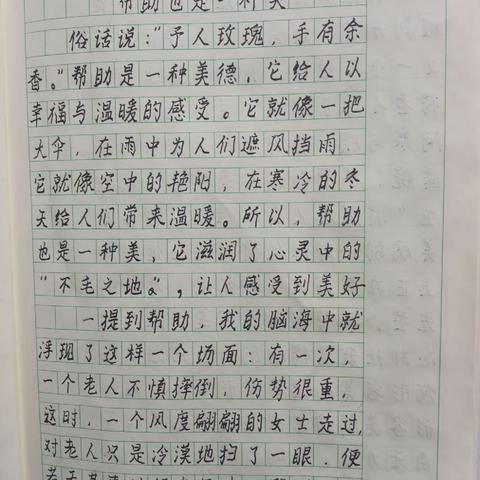 帮助也是一种美
俗话说:“予人玫瑰，手有余
香。”帮助是一种美德，它给人以
幸福与温暖的感受。它就像一把
大伞，在雨中为人们遮风挡雨，
它就像空中的艳阳，在寒冷的冬
天给人们带来温暖。所以，帮助
也是一种美，它滋润了心灵中的
“不毛之地。”，让人感受到美好
一提到帮助，我的脑海中就
浮现了这样一个场面：有一次，
一个老人不慎摔倒，伤势很重，
这时，一个风度翩翩的女士走过，
对老人只是冷漠地扫了一眼，便
若无其事